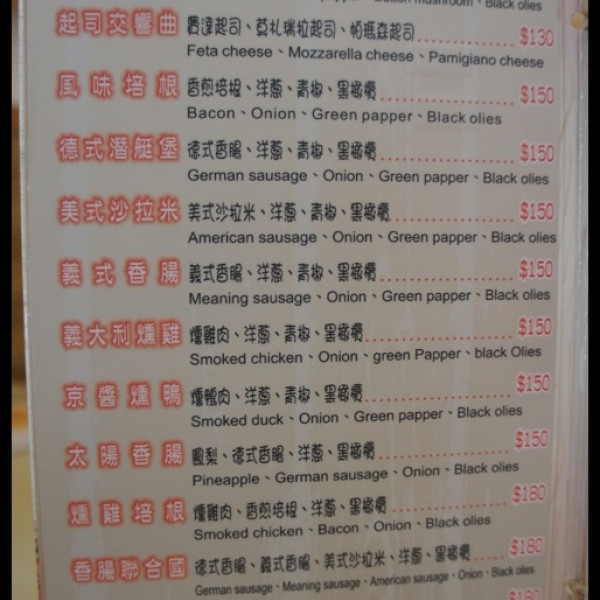 Black olies
起司交響曲 費達起司、莫札瑞拉起司、帕瑪森起司 $130
Feta cheese、Mozzarella cheese、Pamigiano cheese
風味培根 香煎培根、洋蔥、青椒、黑橄欖 $150
Bacon、Onion、Green papper、Black olies
德式潛艇堡 德式香腸、洋蔥、青椒、黑橄欖 $150
German sausage、Onion、Green papper、Black olies
美式沙拉米 美式沙拉米、洋蔥、青椒、黑橄欖 $150
American sausage、Onion、Green papper、Black olies
義式香腸 義式香腸、洋蔥、青椒、黑橄欖 $150
Meaning sausage、Onion、Green papper、Black olies
義大利燻雞 燻雞肉、洋蔥、青椒、黑橄欖 $150
Smoked chicken、Onion、green Papper、black Olies
京醬燻鴨 燻鴨肉、洋蔥、青椒、黑橄欖 $150
Smoked duck、Onion、Green papper、Black olies
太陽香腸 鳳梨、德式香腸、洋蔥、黑橄欖 $150
Pineapple、German sausage、Onion、Black olies
燻雞培根 燻雞肉、香煎培根、洋蔥、黑橄欖 $180
Smoked chicken、Bacon、Onion、Black olies
香腸聯合國 德式香腸、義式香腸、美式沙拉米、洋蔥、黑橄欖 $180
German sausage、Meaning sausage、American sausage、Onion、Black olies
$180